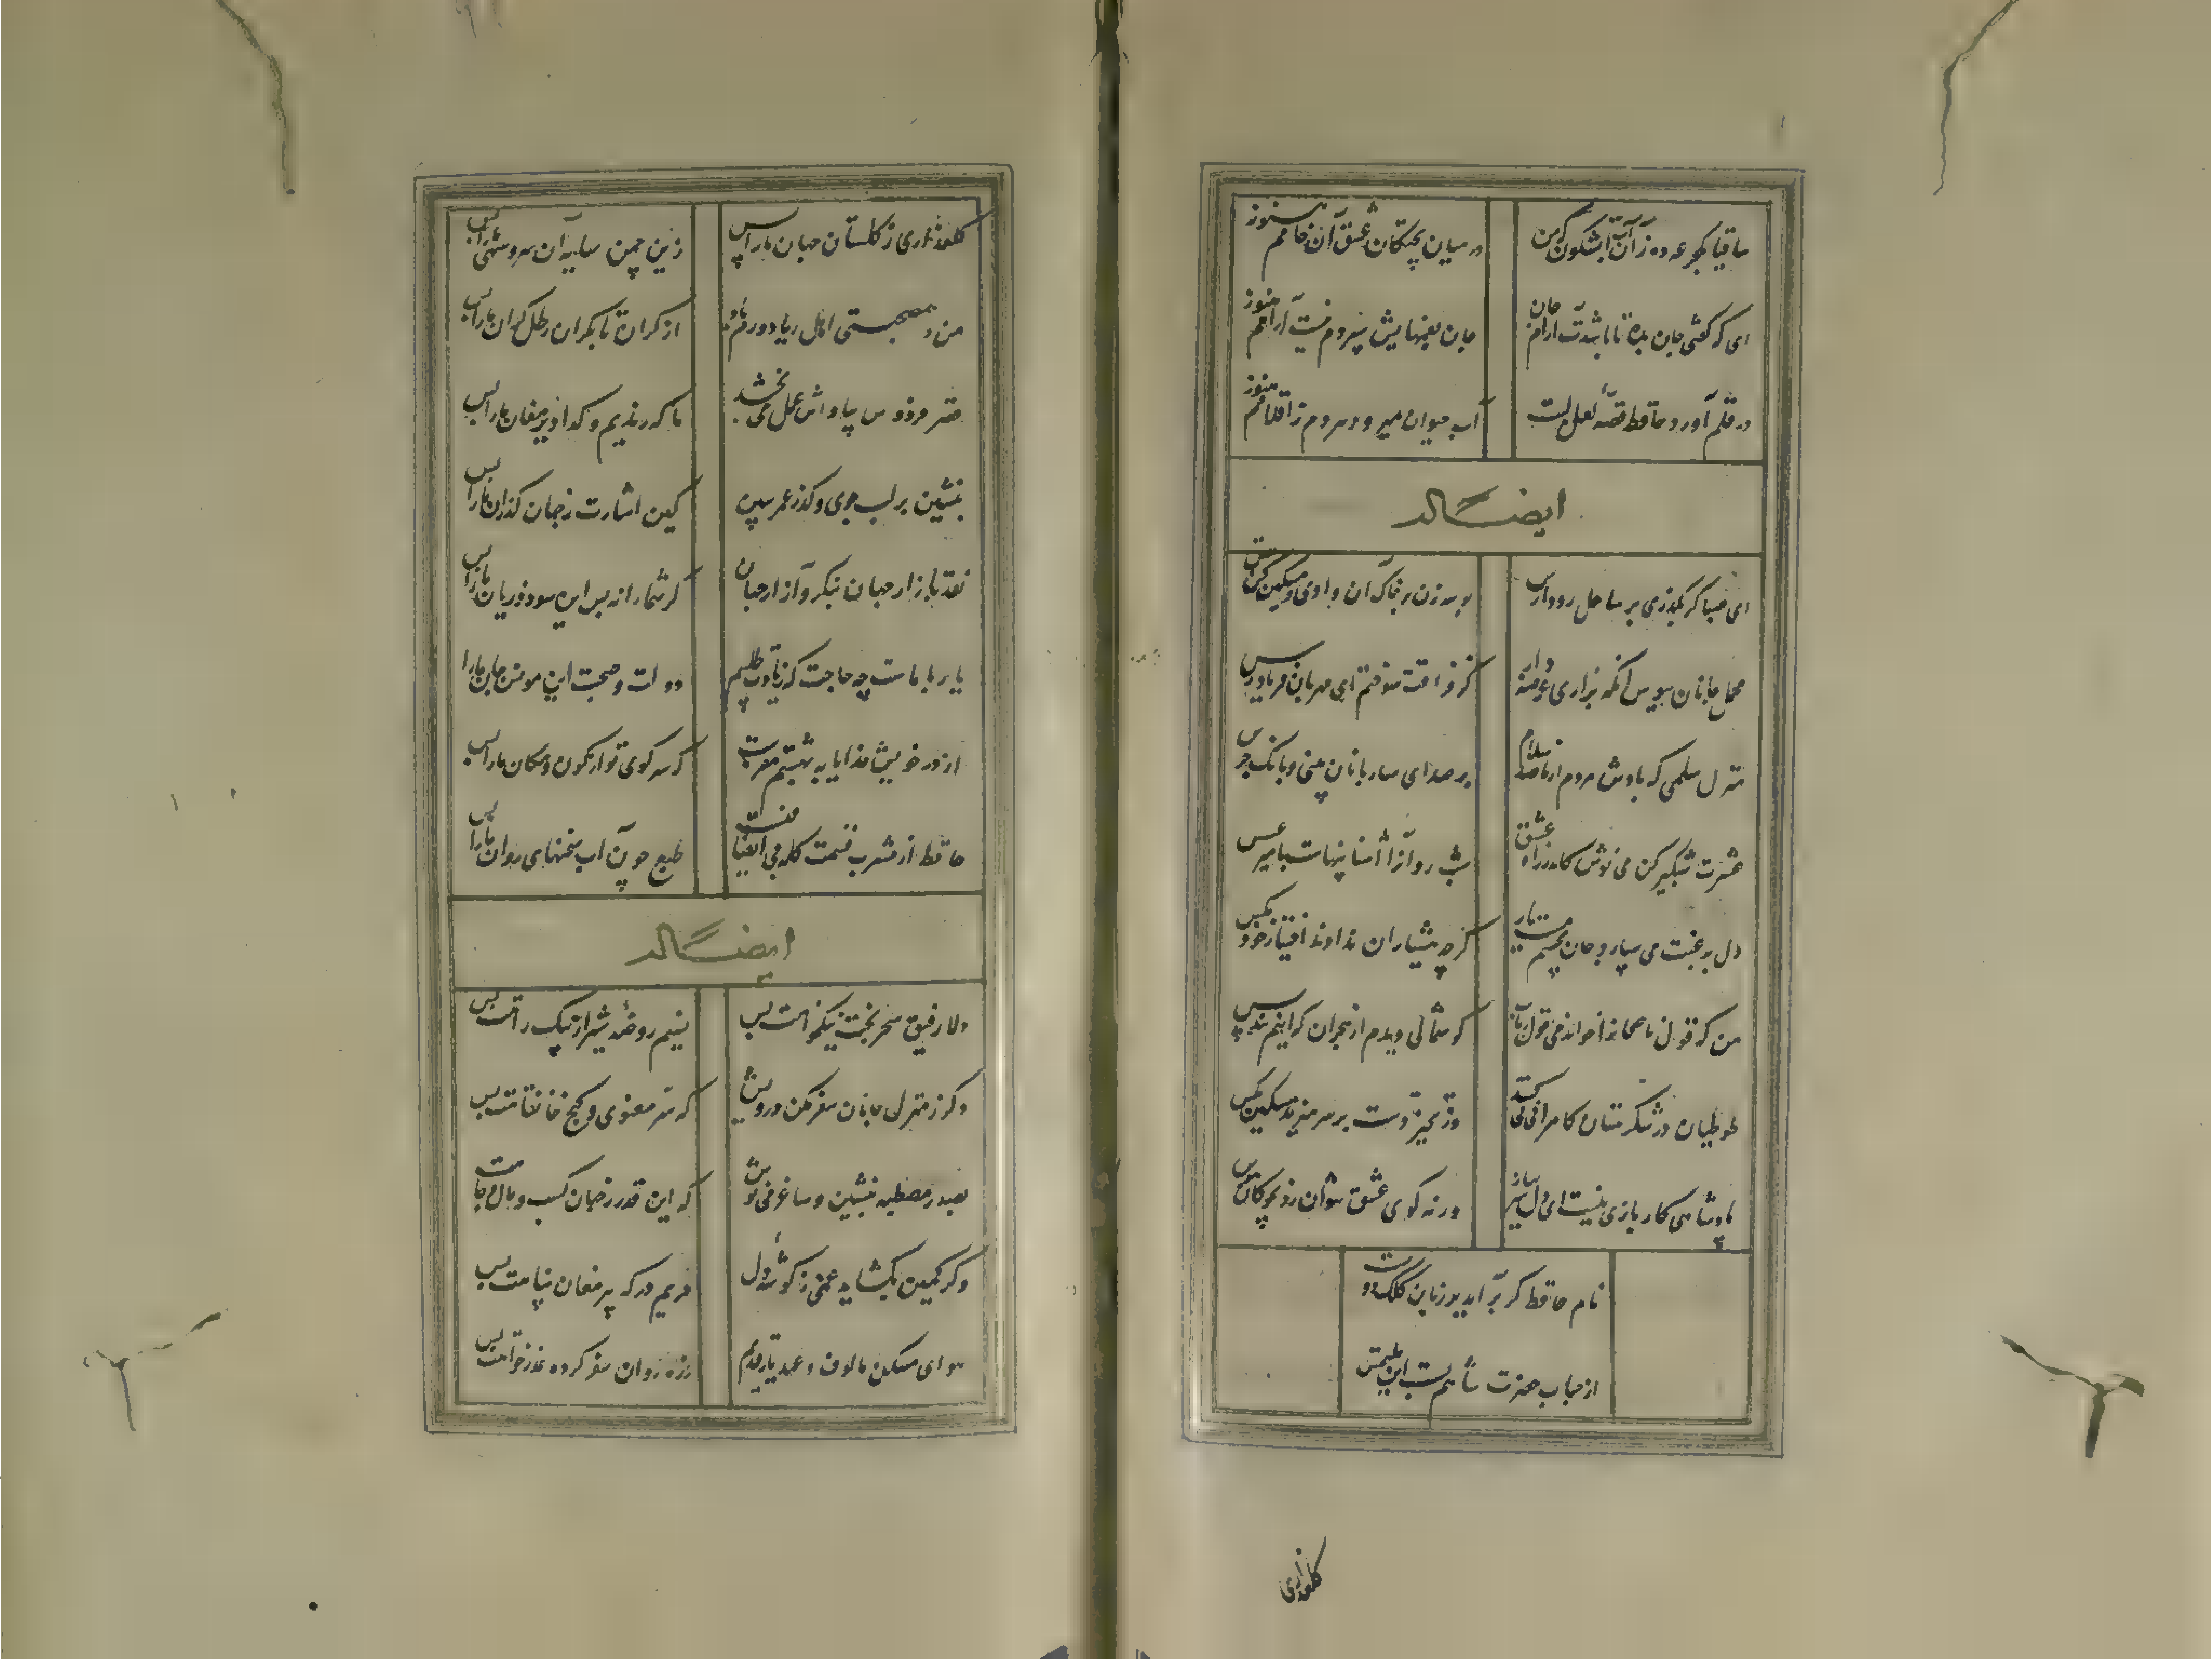 ساقیا یکجرعه ده زآن آب آتشگون که من
در میان پختگان عشق آن خامم هنوز
ای که گفتی جان بده تا باشدت آرام جان
جان بغمهایش سپردم نیست آرامم هنوز
در قلم آورد حافظ قصهٔ لعل لبت
آب حیوان میرود هر دم ز اقلامم هنوز
ایضاً له
ای صبا گر بگذری بر ساحل رود ارس
بوسه زن بر خاک آن وادی و مشکین کن نفس
محمل جانان ببوس آنگه بزاری عرضه دار
کز فراقت سوختم ای مهربان فریاد رس
منزل سلمی که بادش هر دم از ما صد سلام
پر صدای ساربانان بینی و بانگ جرس
عشرت شبگیر کن می نوش کاندر راه عشق
شب روانرا آشنائیهاست با میر عسس
دل برغبت می سپارد جان بچشم مست یار
گرچه هشیاران ندادند اختیار خود بکس
من که قول ناصحانرا خواندمی قول رباب
گوشمالی دیدم از هجران که اینم پند بس
طوطیان در شکرستان کامرانی می کنند
وز تحیر دست بر سر میزند مسکین مگس
پادشاهی کار بازی نیست ای دل سر بباز
ورنه گوی عشق نتوان زد بچوگان هوس
نام حافظ گر برآید بر زبان کلک دوست
از جناب حضرت شاهم بس است این ملتمس
گلعذاری
گلعذاری ز گلستان جهان ما را بس
زین چمن سایهٔ آن سرو سهی ما را بس
من و همصحبتی اهل ریا دورم باد
از گران تا بگران رطل گران ما را بس
قصر فردوس پاداش عمل می بخشند
ما که رندیم و گدا دیر مغان ما را بس
بنشین بر لب جوی و گذر عمر ببین
کین اشارت ز جهان گذران ما را بس
نقد بازار جهان بنگر و آزار جهان
گر شما را نه بس این سود و زیان ما را بس
یار با ماست چه حاجت که زیادت طلبیم
دولت و صحبت این مونس جان ما را
از در خویش خدایا به بهشتم مفرست
که سر کوی تو از کون و مکان ما را بس
حافظ از مشرب قسمت گله بی انصافیست
طبع چون آب سخنهای روان ما را بس
ایضاً له
دلا رفیق سفر بخت نیکخواهت بس
نسیم روضهٔ شیراز پیک راهت بس
دگر ز منزل جانان سفر مکن درویش
که سیر معنوی و کنج خانقاهت بس
بصدر مصطبه بنشین و ساغر می نوش
که این قدر ز جهان کسب و مال و جاهت
وگر کمین بگشاید غمی ز گوشهٔ دل
حریم درگه پیر مغان پناهت بس
هوای مسکن مالوف و عهد یار قدیم
ز ره روان سفر کرده عذر خواهت بس